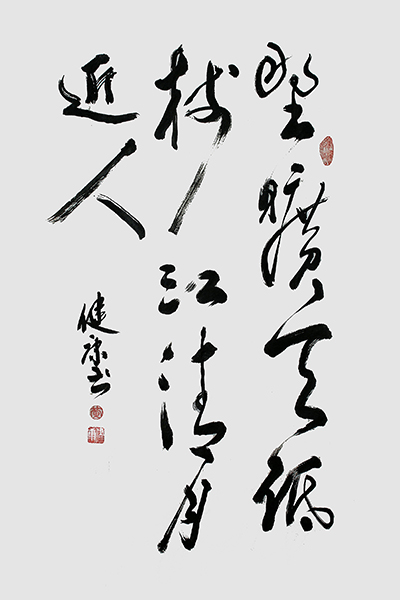 野曠天低
树江清月
近人
健康书